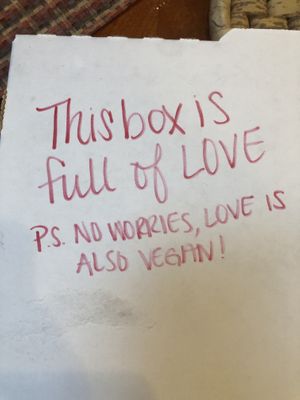 This box is
full of LOVE
P.S. NO WORRIES, LOVE IS
ALSO VEGAN!